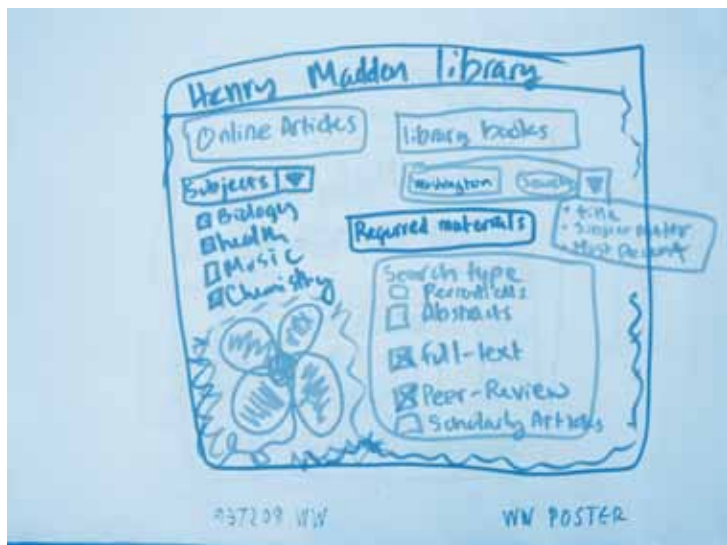 Henry Madden library
Online Articles
library books
Subjects
Biology
health
Music
Chemistry
Washington
Search
title
Subject matter
Most Recent
Required materials
Search type
Periodicals
Abstracts
Full-text
Peer-Review
Scholarly Articles
WN POSTER